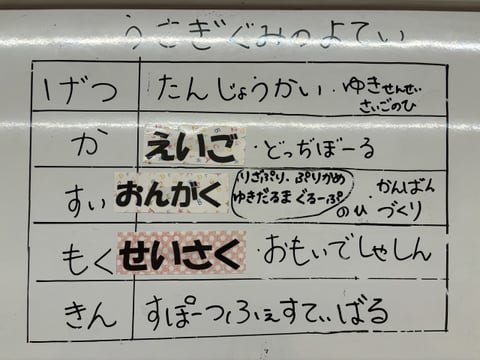 うさぎぐみのよてい
1げつ たんじょうかい・ゆきせんせい
さいごのひ
か えいご・どっぢぼーる
すい おんがく りざぷり、ぷりかめ
ゆきだるまぐるーぷ
のひ・かんばん
づくり
もく せいさく・おもいでしゃしん
きん すぽーつふぇすてぃばる